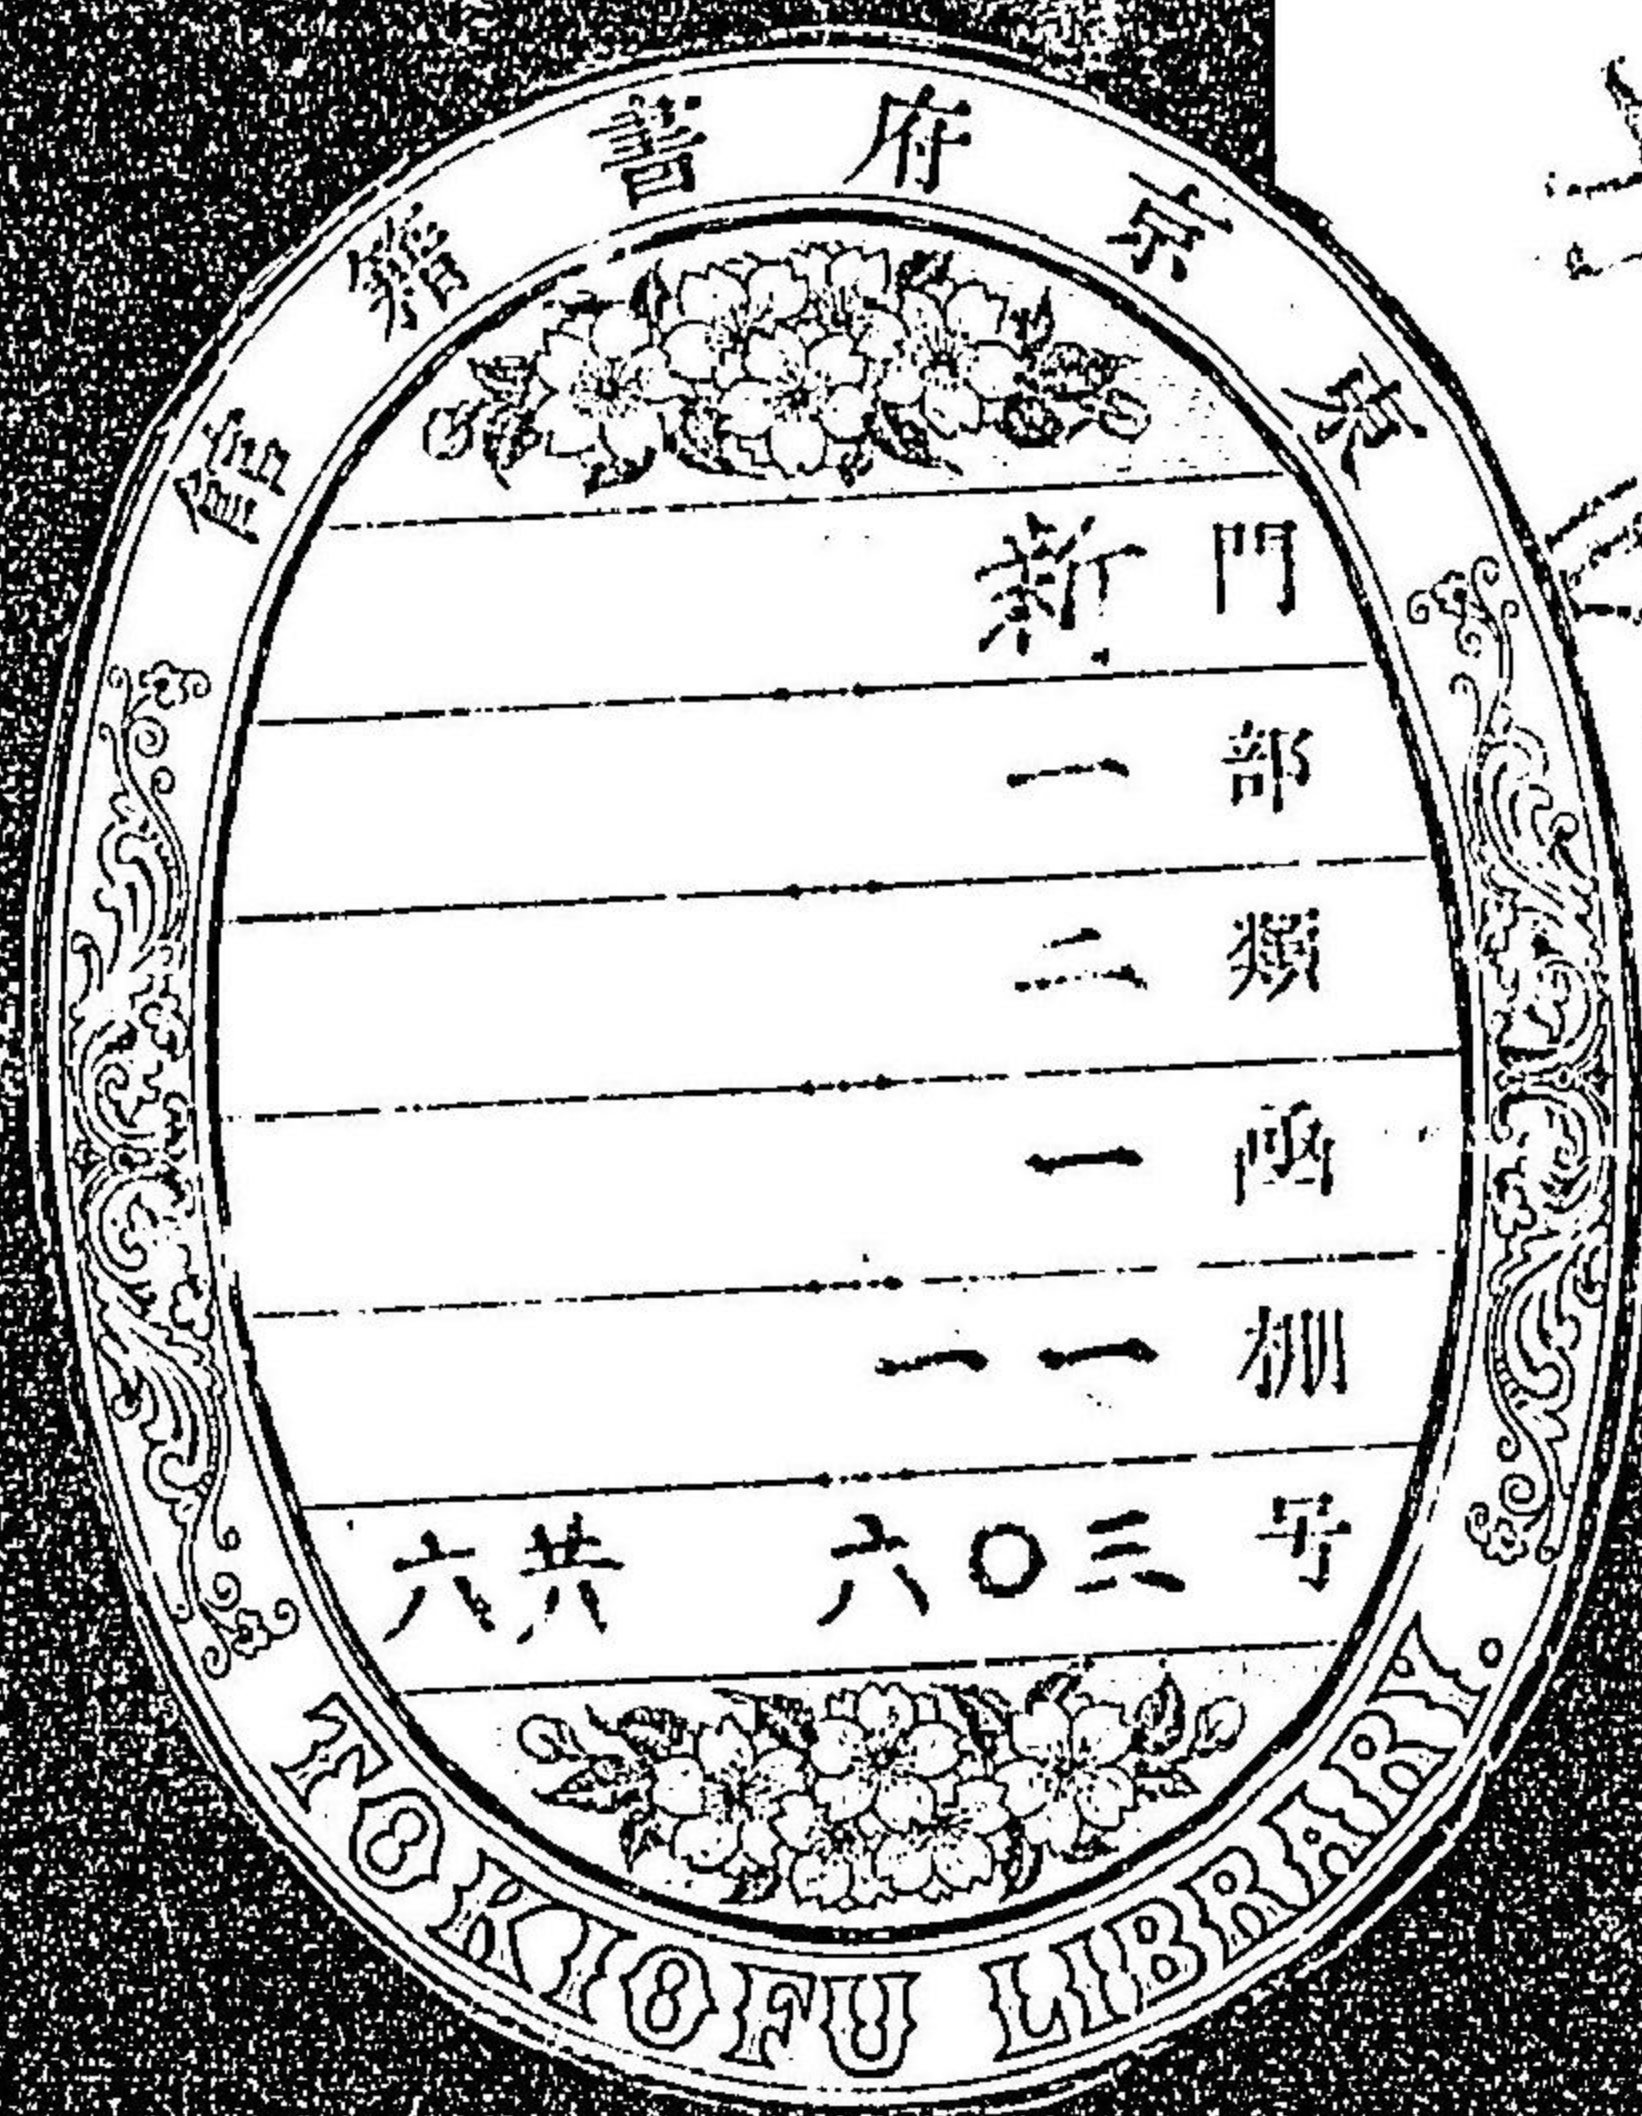 東京府書籍館
門 新
部 一
類 二
函 一
棚 一一
号 三〇六 共六
TOKIOFU LIBRARY.